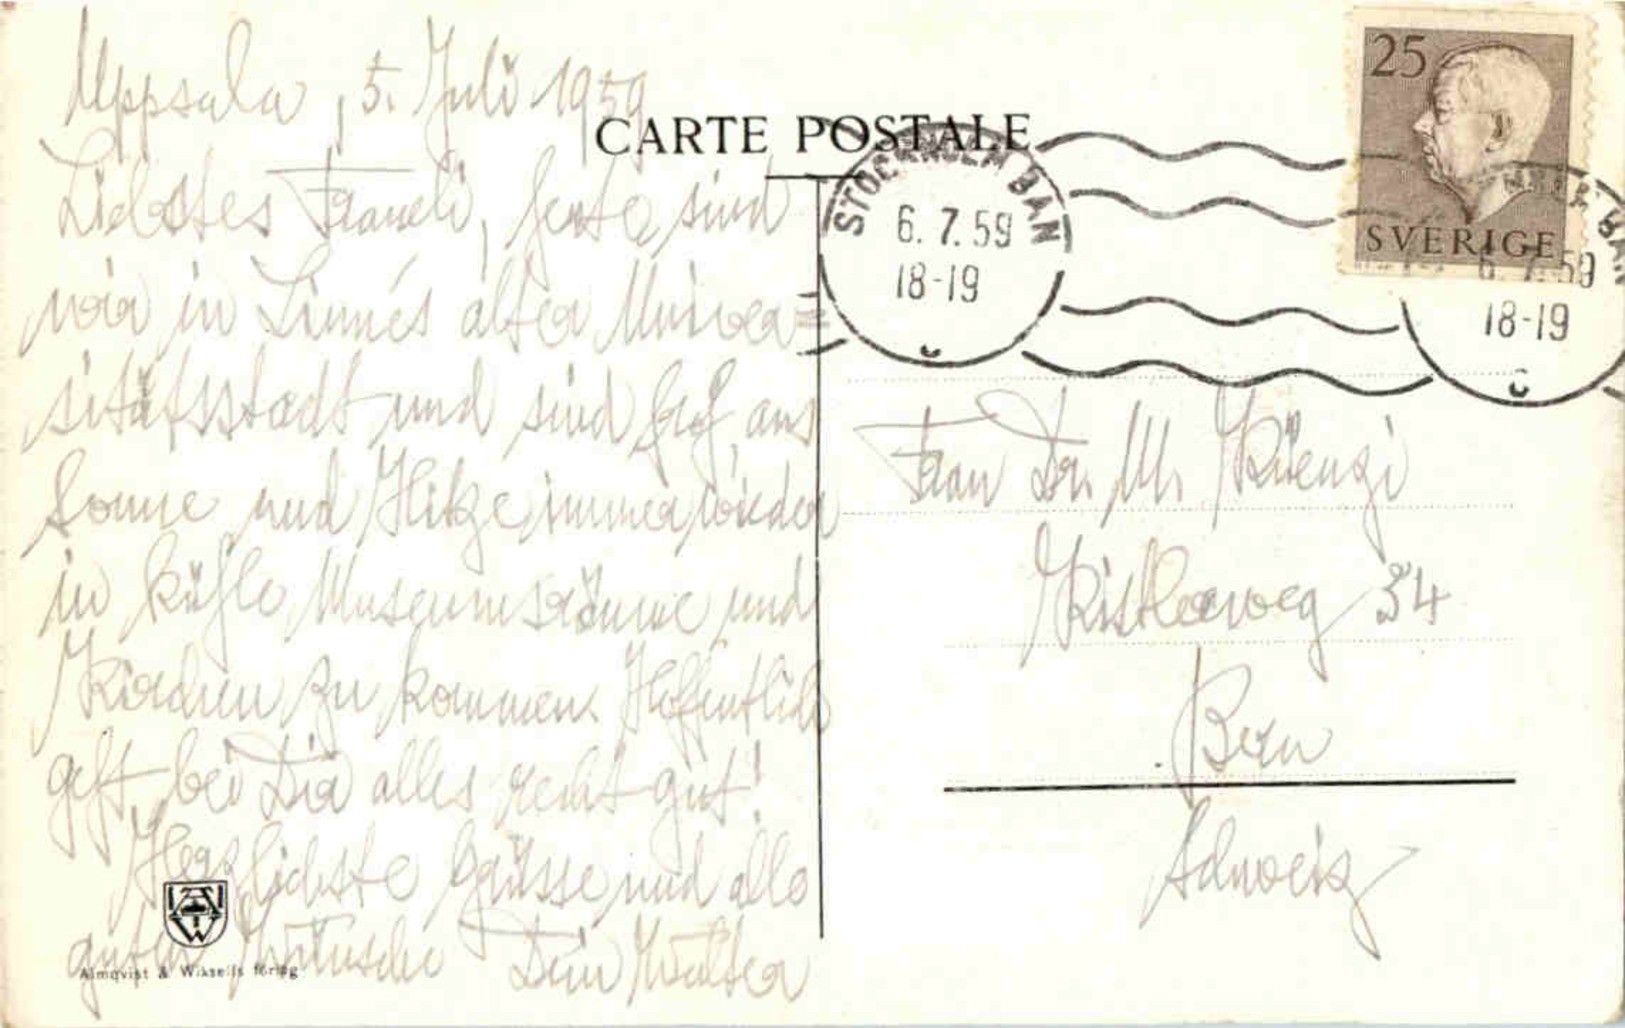 Uppsala, 5. Juli 1959
Liebstes Fraueli, heute sind
wir in Linnés alter Univer=
sitätsstadt und sind froh, aus
Sonne und Hitze immer wieder
in kühle Museumsräume und
Kirchen zu kommen. Hoffentlich
geht bei Dir alles recht gut!
Herzlichste Grüsse und alle
guten Wünsche Dein Walter
Almqvist & Wiksells förlag
CARTE POSTALE
STOCKHOLM BAN
6.7.59
18-19
25
SVERIGE
BAN
6.7.59
18-19
Frau Dr. M. Küenzi
Kistlerweg 34
Bern
Schweiz